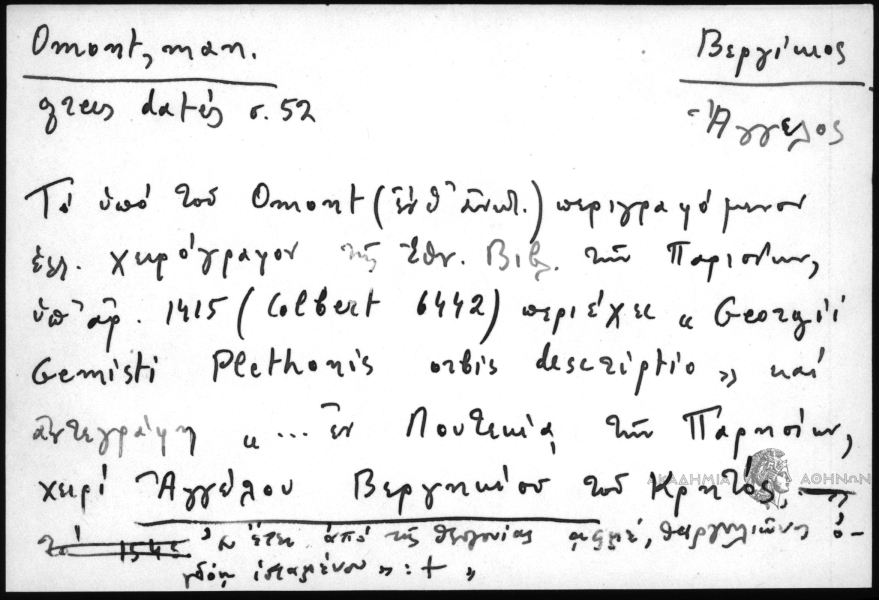 Omont, man. Βεργίκιος
grecs datés σ. 52 Ἄγγελος
Τό ὑπό τοῦ Omont (ἐνθ' ἀνωτ.) περιγραφόμενον
ἑλλ. χειρόγραφον τῆς Ἐθν. Βιβλ. τῶν Παρισίων,
ὑπ' ἀρ. 1415 (Colbert 6442) περιέχει « Georgii
Gemisti Plethonis orbis descriptio » καί
ἀντεγράφη « ... ἐν Λουτεκίᾳ τῶν Παρησίων,
χειρί Ἀγγέλου Βεργηκίου τοῦ Κρητός,
ΑΚΑΔΗΜΙΑ ΑΘΗΝΩΝ
τῷ 1545 ἔτει ἀπό τῆς θεογονίας, θαργηλιῶνος ὀ-
γδόῃ ἱσταμένου » : + »